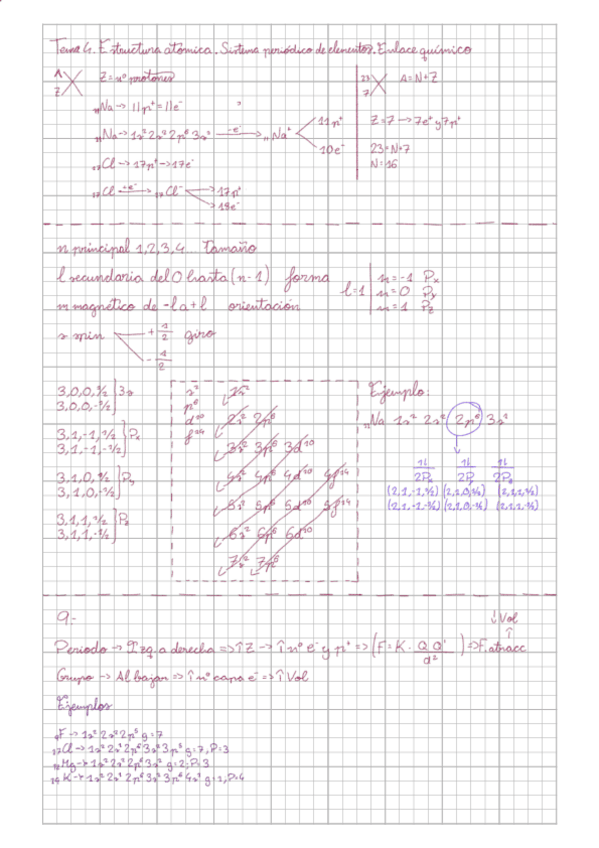 Tema 4. Estructura atómica. Sistema periódico de elementos. Enlace químico
A
Z X Z = nº protones
₁₁Na → 11p⁺ = 11e⁻
₁₁Na → 1s² 2s² 2p⁶ 3s¹ —-e⁻→ ₁₁Na⁺ 11p⁺
10e⁻
₁₇Cl → 17p⁺ → 17e⁻
₁₇Cl —+e⁻→ ₁₇Cl⁻ 17p⁺
18e⁻
23
7 X A = N+Z
Z=7 → 7e⁻ y 7p⁺
23=N+7
N=16
n principal 1,2,3,4 Tamaño
l secundaria del 0 hasta (n-1) forma
m magnético de -l a +l orientación
l=1 m=-1 Px
m=0 Py
m=1 Pz
s spin +1/2 giro
-1/2
3,0,0,1/2 } 3s
3,0,0,-1/2
3,1,-1,1/2 } Px
3,1,-1,-1/2
3,1,0,1/2 } Py
3,1,0,-1/2
3,1,1,1/2 } Pz
3,1,1,-1/2
s²
p⁶
d¹⁰
f¹⁴
1s²
2s² 2p⁶
3s² 3p⁶ 3d¹⁰
4s² 4p⁶ 4d¹⁰ 4f¹⁴
5s² 5p⁶ 5d¹⁰ 5f¹⁴
6s² 6p⁶ 6d¹⁰
7s² 7p⁶
Ejemplo:
₁₁Na 1s² 2s² 2p⁶ 3s¹
1l 1l 1l
2Px 2Py 2Pz
(2,1,-1,1/2) (2,1,0,1/2) (2,1,1,1/2)
(2,1,-1,-1/2) (2,1,0,-1/2) (2,1,1,-1/2)
9.-
↓Vol
⇑
Periodo → Izq. a derecha ⇒ ↑Z → ↑nº e⁻ y p⁺ ⇒ (F = K · Q Q' / d²) ⇒ F. atracc
Grupo → Al bajar ⇒ ↑nº capa e⁻ ⇒ ↑Vol
Ejemplos
₉F → 1s² 2s² 2p⁵ g=7
₁₇Cl → 1s² 2s² 2p⁶ 3s² 3p⁵ g=7, P=3
₁₂Mg → 1s² 2s² 2p⁶ 3s² g=2, P=3
₁₉K → 1s² 2s² 2p⁶ 3s² 3p⁶ 4s¹ g=1, P=4